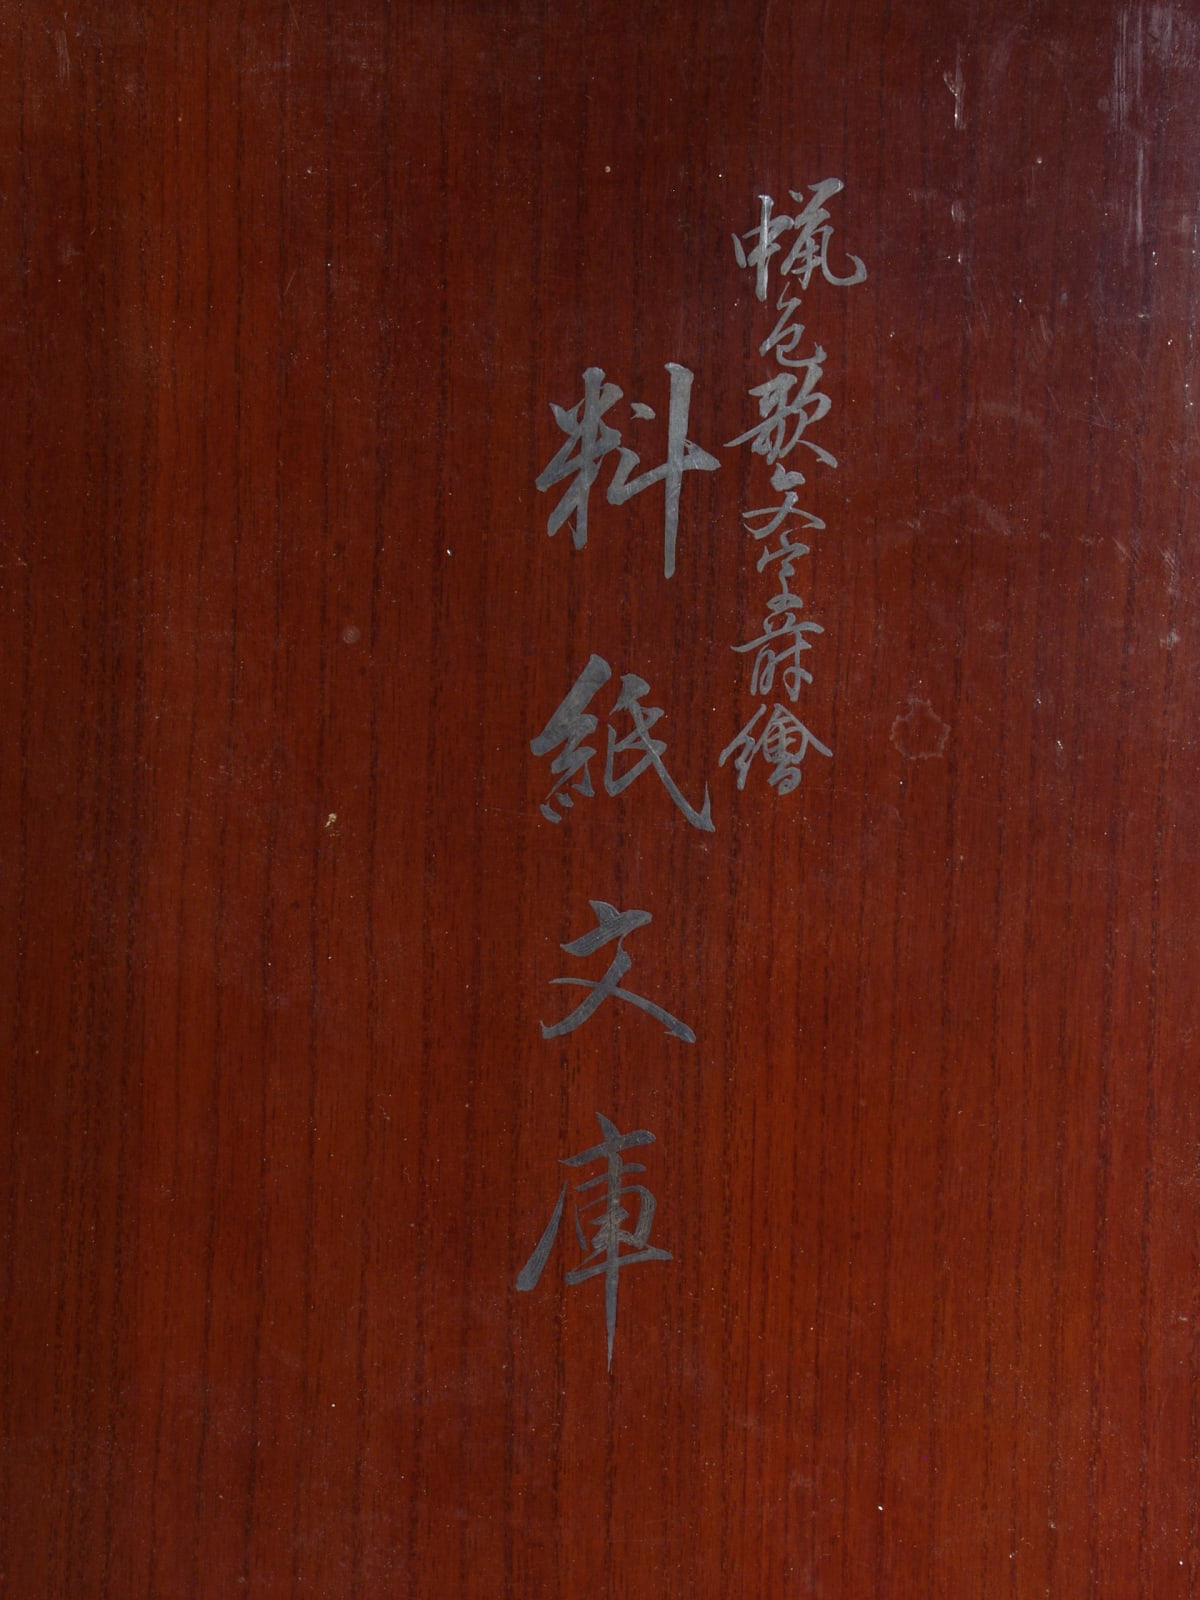 蝋色歌文字蒔繪
料紙文庫